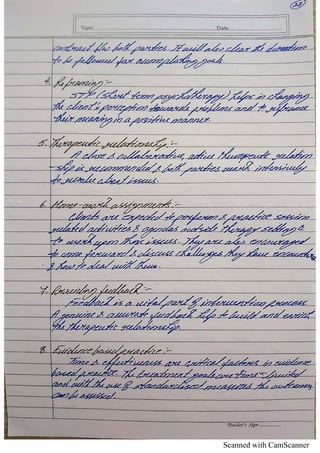 Topic
Date
contract for both parties. It will also clear the direction
to be followed for accomplishing goals.
4. Reframing :-
STP (short term psychotherapy) helps in changing
the client's perception towards problems and to reframe
their meaning in a positive manner.
5. Therapeutic relationship :-
A close & collaborative, active therapeutic relation
-ship is recommended & both parties work intensively
to resolve client issues.
6. Home-work assignments :-
Clients are expected to perform & practice session
related activities & agendas outside therapy settings &
to work upon those issues. They are also encouraged
to come forward & discuss challenges they have encountered
& how to deal with them.
7. Providing feedback :-
Feedback is a vital part of intervention process.
A genuine & accurate feedback help to build and enrich
the therapeutic relationship.
8. Evidence based practice :-
Time & effectiveness are critical factors in evidence
based practice. The treatment goals are time-limited
and with the use of standardised measures the outcomes
can be assessed.
Teacher's Sign
Scanned with CamScanner